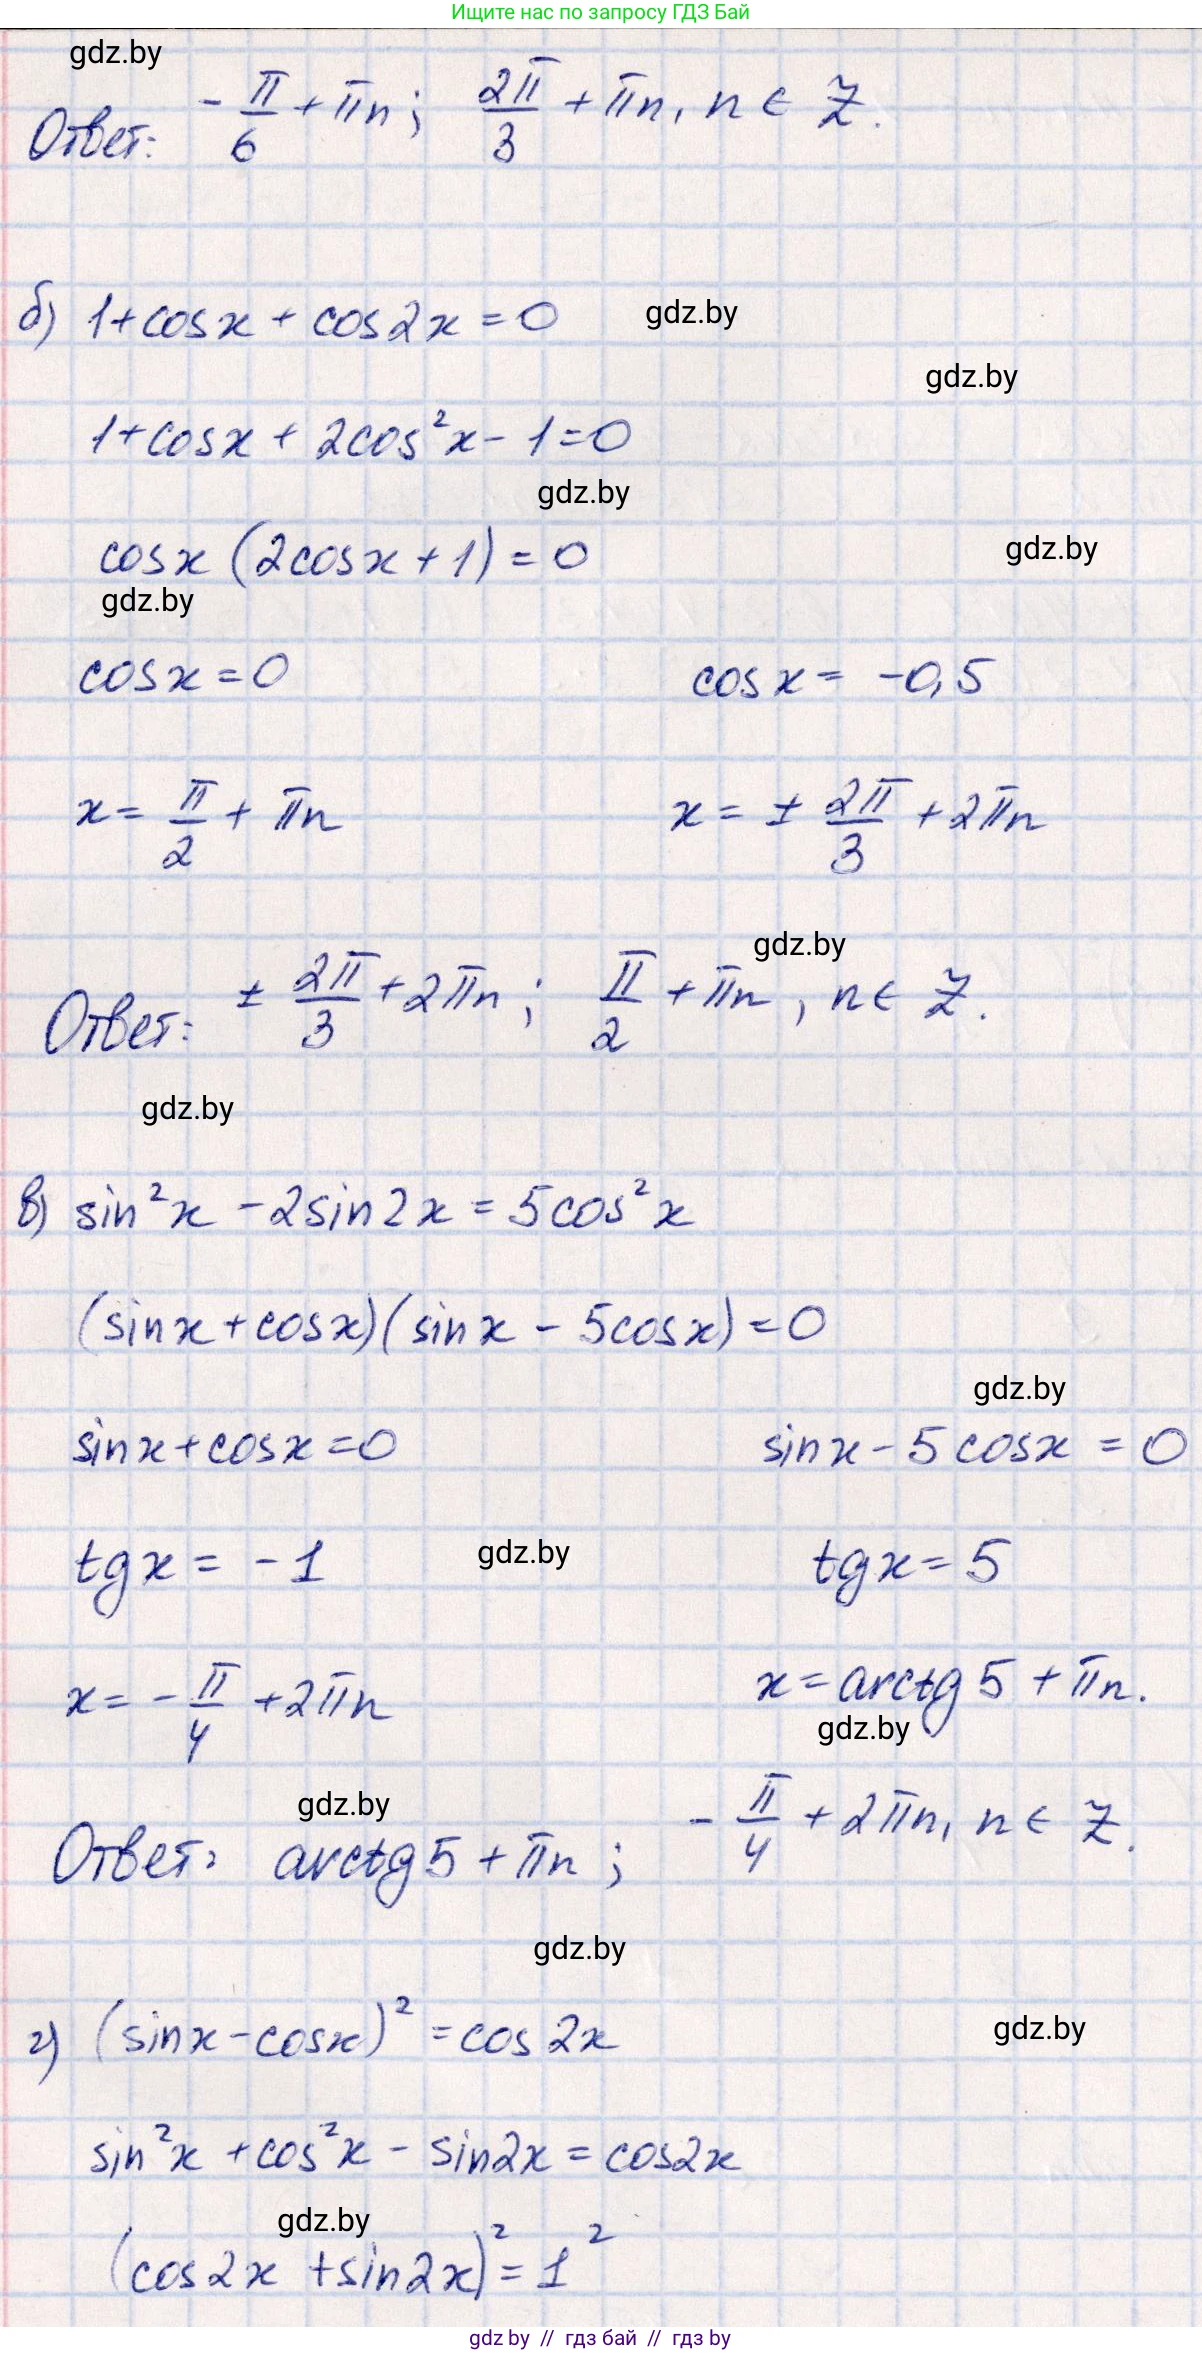 Ищите нас по запросу ГДЗ Бай
gdz.by
Ответ: -π/6 + πn; 2π/3 + πn, n ∈ Z.
б) 1+cosx + cos2x = 0
gdz.by
gdz.by
1+cosx + 2cos²x - 1 = 0
gdz.by
cosx (2cosx + 1) = 0
gdz.by
gdz.by
cosx = 0 cosx = -0,5
x = π/2 + πn x = ± 2π/3 + 2πn
gdz.by
Ответ: ± 2π/3 + 2πn; π/2 + πn, n ∈ Z.
gdz.by
в) sin²x - 2sin2x = 5cos²x
(sinx + cosx)(sinx - 5cosx) = 0
gdz.by
sinx + cosx = 0 sinx - 5cosx = 0
gdz.by
tgx = -1 tgx = 5
x = -π/4 + 2πn x = arctg5 + πn.
gdz.by
gdz.by
Ответ: arctg5 + πn; -π/4 + 2πn, n ∈ Z.
gdz.by
г) (sinx - cosx)² = cos2x
gdz.by
sin²x + cos²x - sin2x = cos2x
gdz.by
(cos2x + sin2x)² = 1²
gdz.by // гдз бай // гдз by